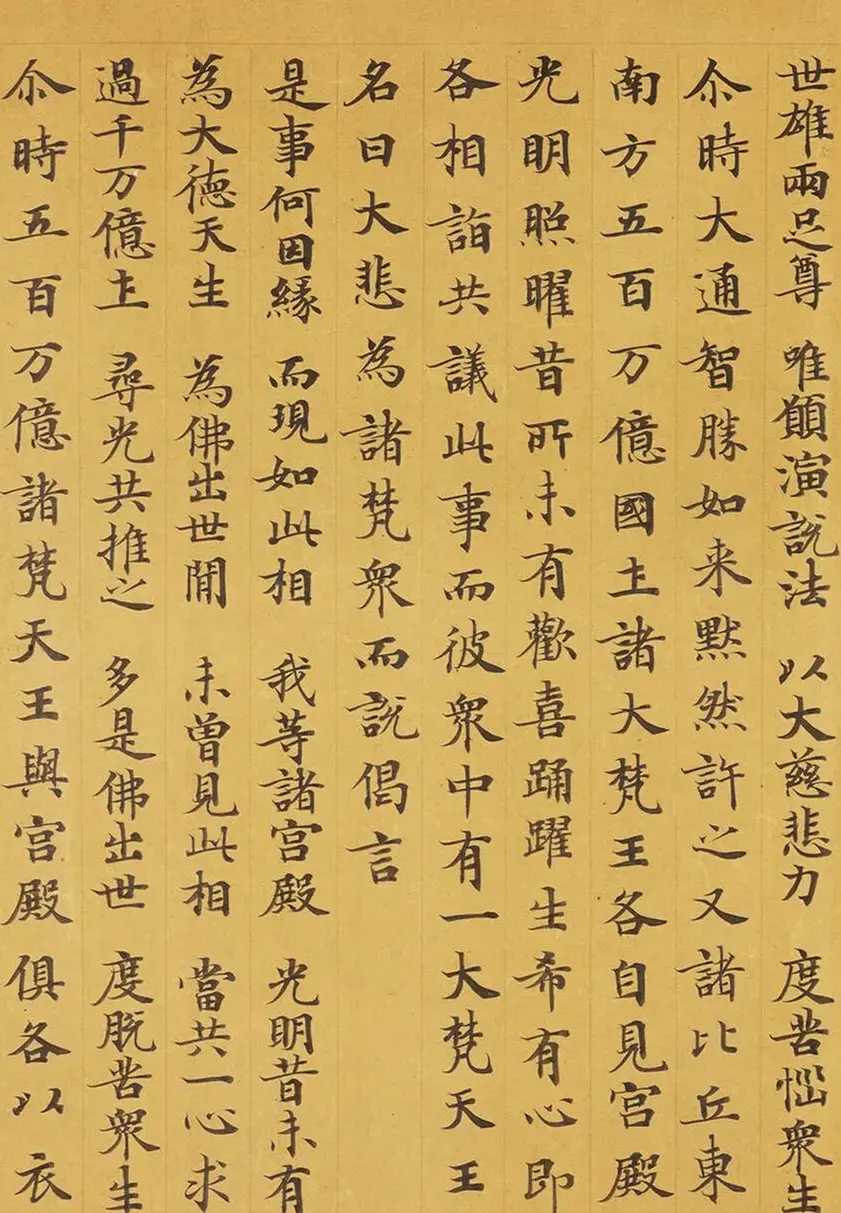 世雄兩足尊 唯願演說法 以大慈悲力 度苦惱衆生
尒時大通智勝如来默然許之又諸比丘東
南方五百万億國土諸大梵王各自見宮殿
光明照曜昔所未有歡喜踊躍生希有心即
各相詣共議此事而彼衆中有一大梵天王
名曰大悲為諸梵衆而說偈言
是事何因緣 而現如此相 我等諸宮殿 光明昔未有
為大德天生 為佛出世間 未曾見此相 當共一心求
過千万億土 尋光共推之 多是佛出世 度脫苦衆生
尒時五百万億諸梵天王與宮殿俱各以衣